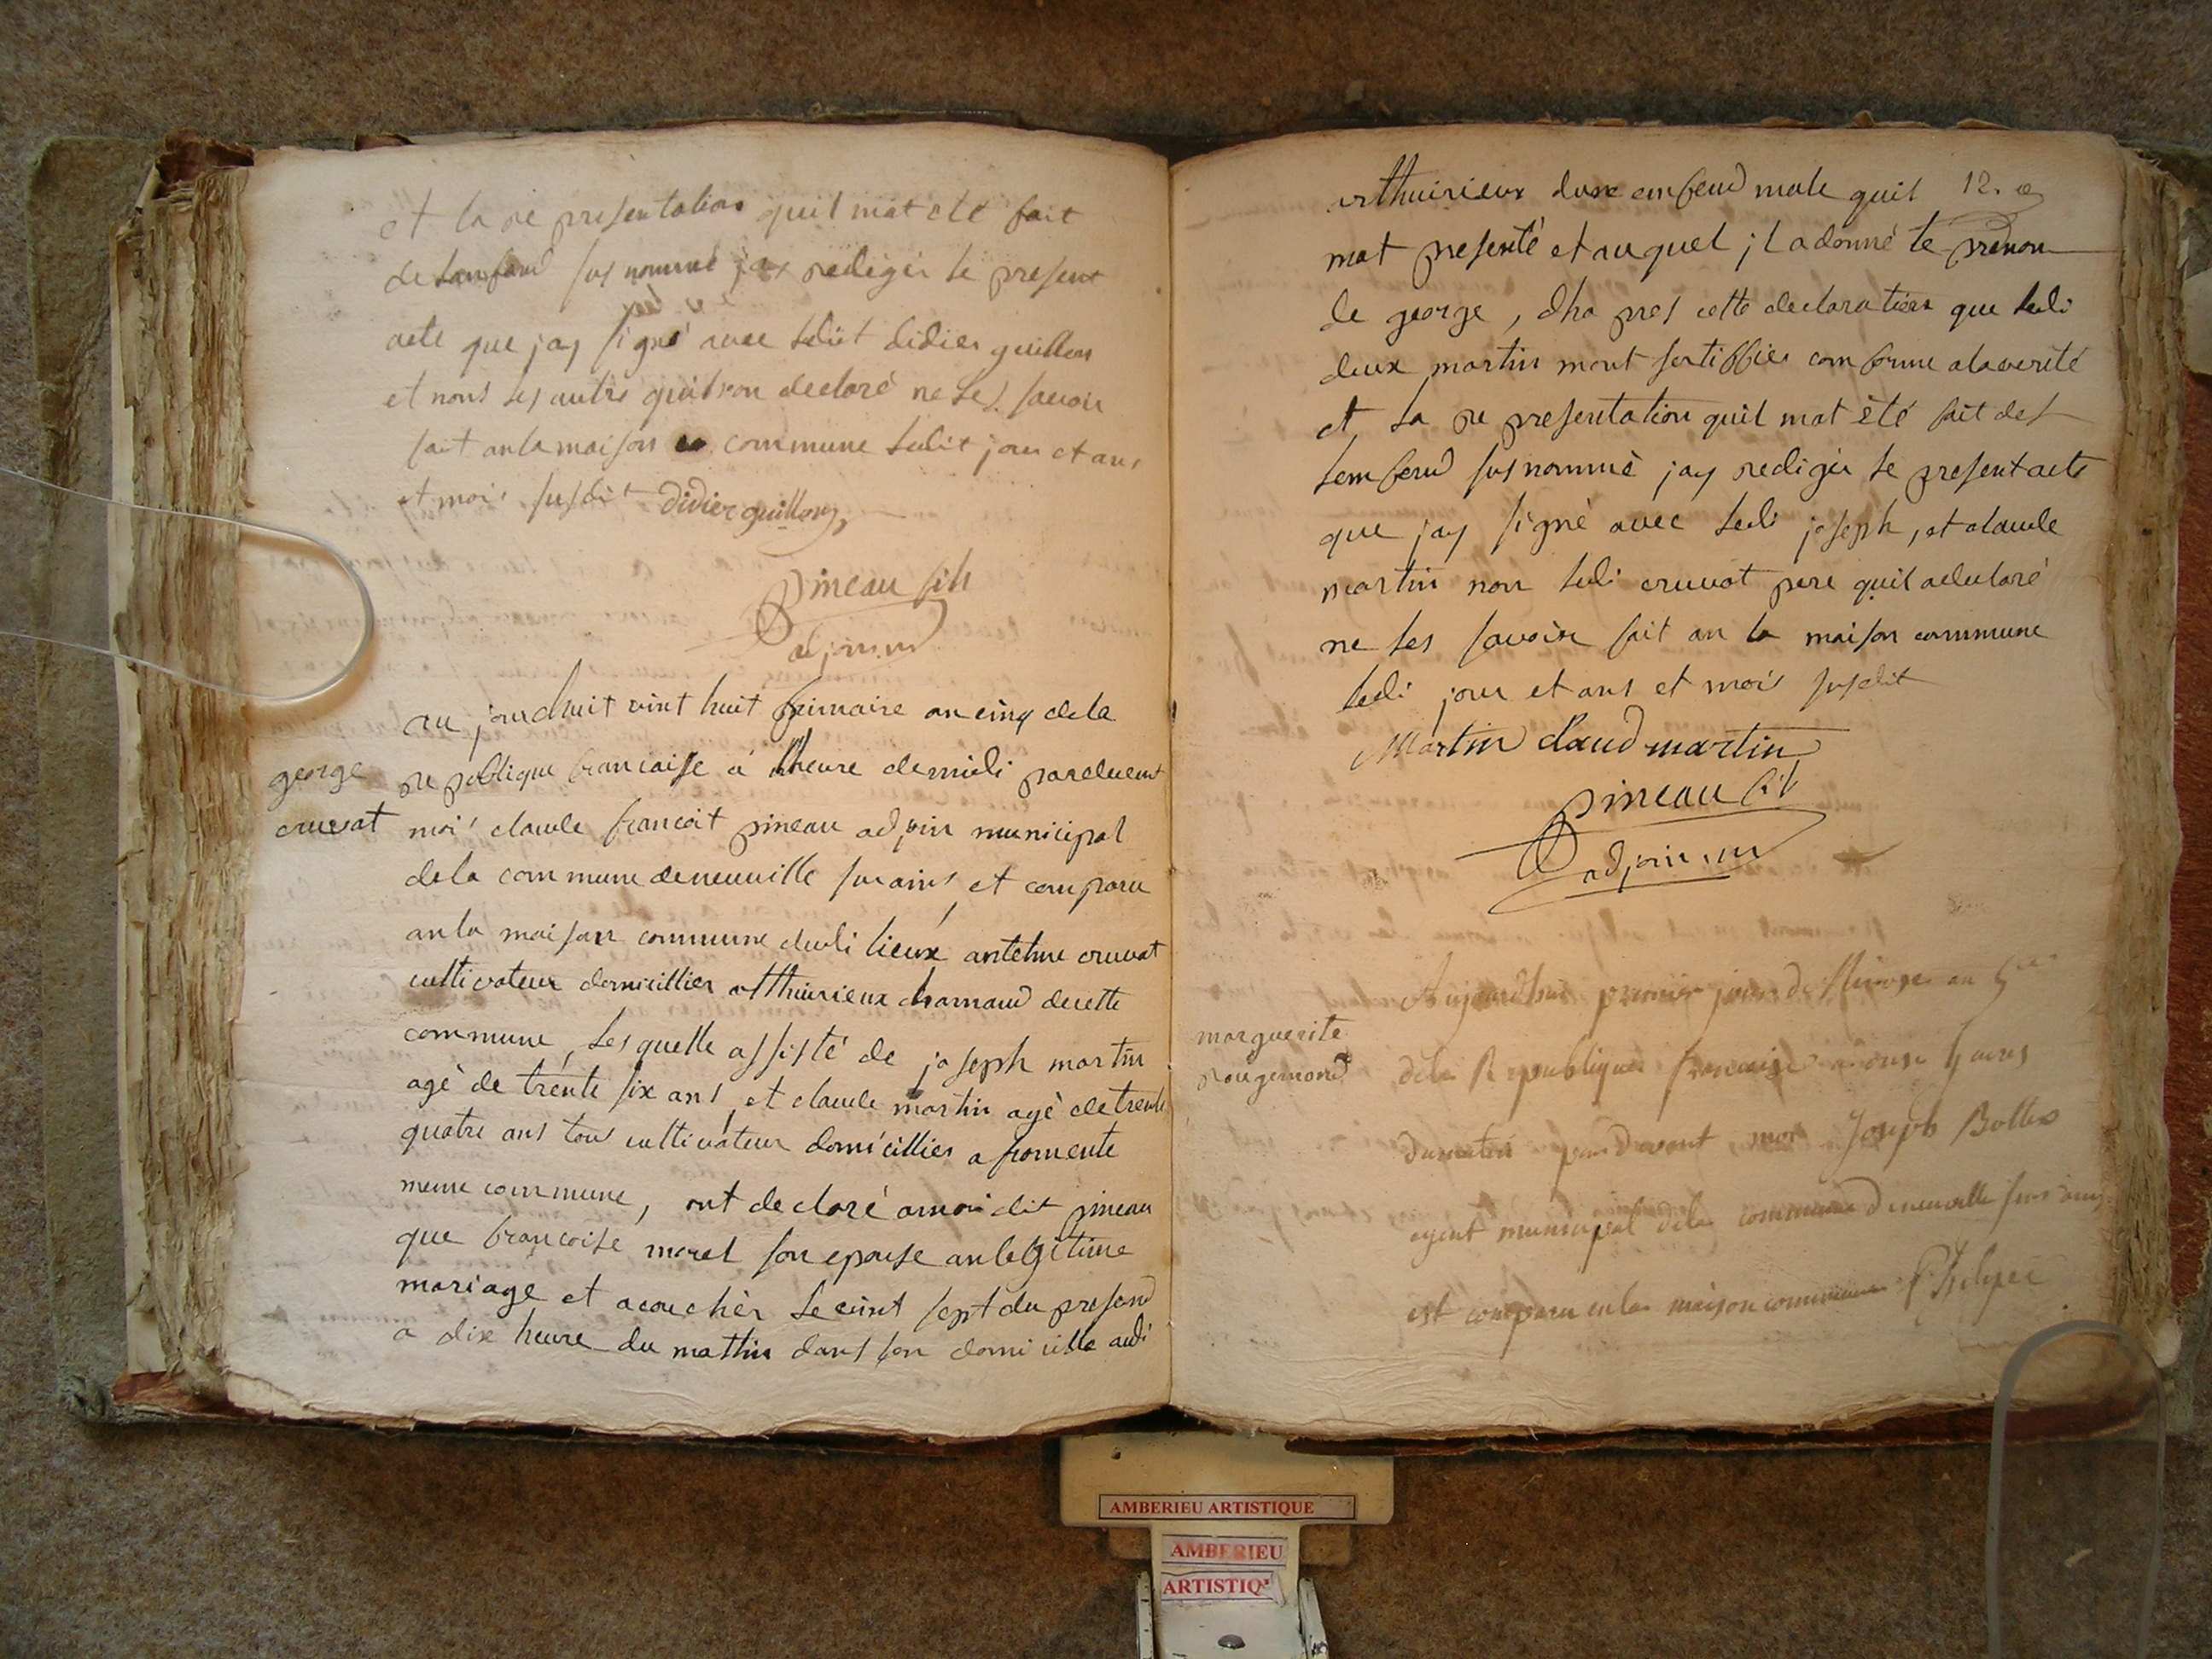 et la re presentation quil mat eté fait
de lenfend sus nommé jay rediger le present
acte que jay signé avec ledit didier guillon
et nont les autre quil on declaré ne les savoir
fait an la maison commune ledit jour et ans
et mois susdit didier guillon
pineau fils
adjoin m
george
cruvat
au jourdhuit vint huit frimaire an cinq de la
re publique francaisse à lheure de midi pardevent
moi claude francoit pineau adjoin municipal
de la commune de neuville sur ains et comparu
an la maison commune dudi lieux antelme cruvat
cultivateur domicillier atthuirieux charnaud de cette
commune, lesquelle assisté de joseph martin
agé de trente six ans, et claude martin agé de trente
quatre ans tous cultivateur domicillies a fromente
meme commune, ont declaré a moi dit pineau
que francoise morel son epouse an legitime
mariage et acouchér le vint sept du presend
a dix heure du mathin dans son domicille audi
12. e
atthuirieux dun emfend male quil
mat presenté et auquel jl a donné le prenon
de george, dha pres cette declaration que ledi
deux martin mont sertiffies comforme a la verité
et la re presentation quil mat été fait de
lemfend susnommé jay rediger le present acte
que jay signé avec ledi joseph, et claude
martin non ledi cruvat pere quil a declaré
ne les savoir fait an la maison commune
ledi jour et ans et mois susdit
Martin claud martin
pineau fils
adjoin m
marguerite
rougemond
Aujourdhui premier jour de Nivose an 5
dela Republique francaise a onze heures
du matin par devant moi Joseph Bollet
agent municipal dela commune de neuville sur ain
est comparu en la maison commune Philipe
AMBERIEU ARTISTIQUE
AMBERIEU
ARTISTIQ